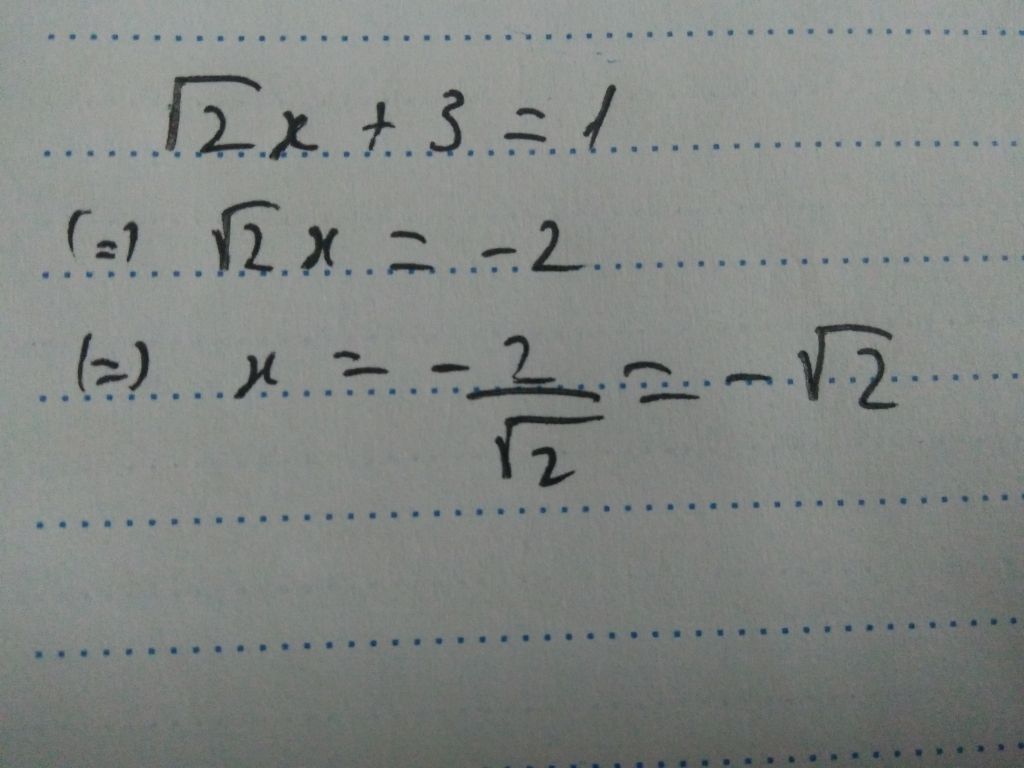 √2x + 3 = 1
(=) √2x = -2
(=) x = -2/√2 = -√2